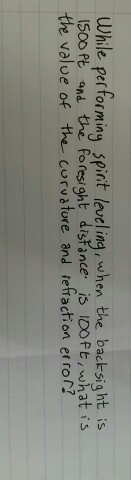 While performing spirit leveling, when the backsight is
1500 ft and the foresight distance is 100 ft, what is
the value of the curvature and refraction error?